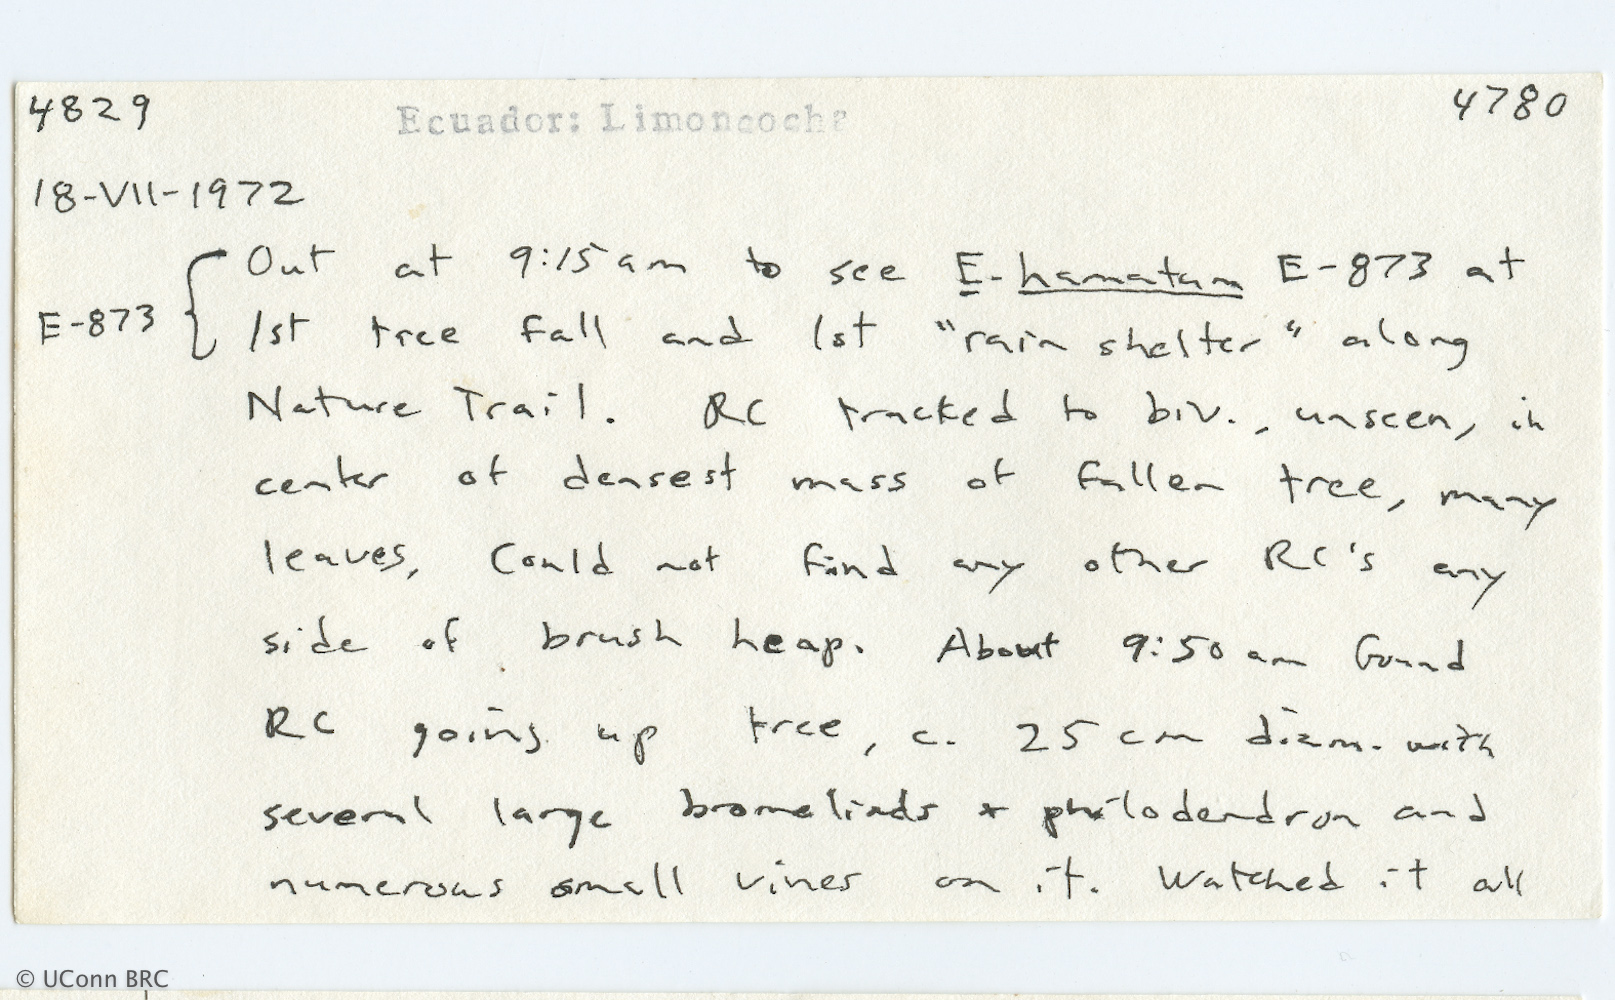 4829 Ecuador: Limoncocha 4780
18-VII-1972
Out at 9:15 am to see E. hamatum E-873 at
E-873 1st tree fall and 1st "rain shelter" along
Nature Trail. RC tracked to biv., unseen, in
center of densest mass of fallen tree, many
leaves, Could not find any other RC's any
side of brush heap. About 9:50 am found
RC going up tree, c. 25 cm diam. with
several large bromeliads + philodendron and
numerous small vines on it. Watched it all
© UConn BRC